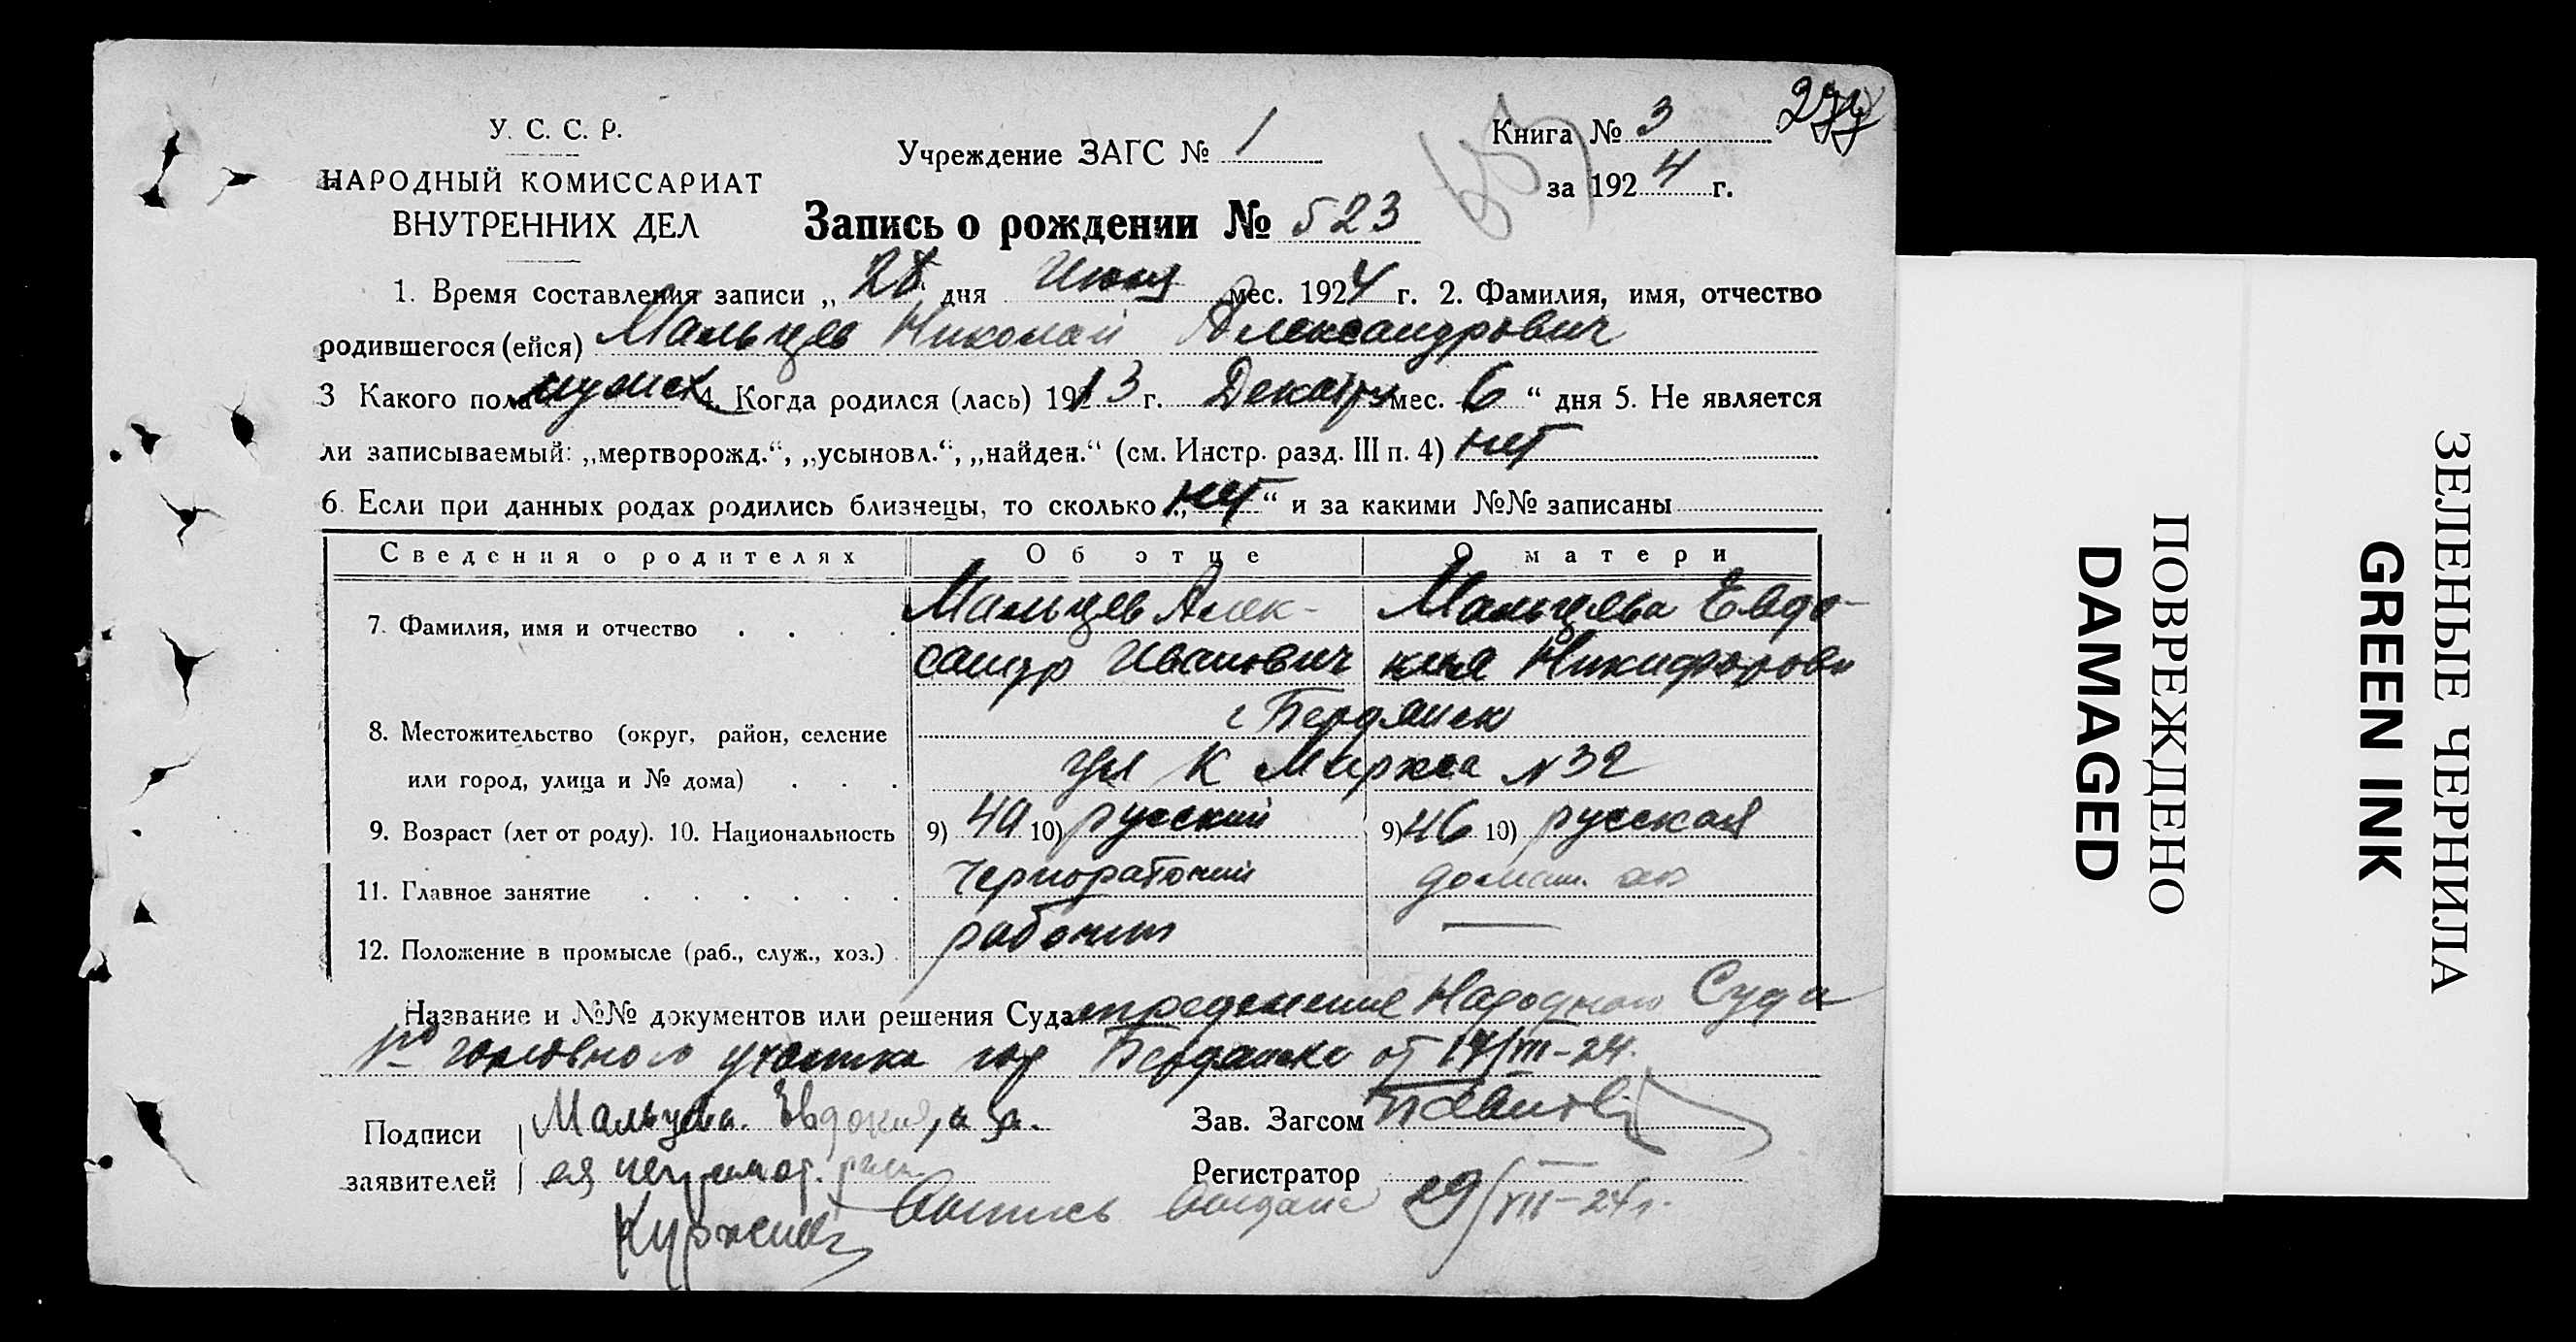 У. С. С. Р.
НАРОДНЫЙ КОМИССАРИАТ
ВНУТРЕННИХ ДЕЛ
Учреждение ЗАГС № 1
Книга № 3
за 1924 г.
Запись о рождении № 523
1. Время составления записи „28" дня мес. 1924 г. 2. Фамилия, имя, отчество
родившегося (ейся) Мальцев Николай Александрович
3 Какого пола мужск 4. Когда родился (лась) 1913 г. Декабря мес. 6 “ дня 5. Не является
ли записываемый: „мертворожд.“, „усыновл.“, „найден.“ (см. Инстр. разд. III п. 4) нет
6. Если при данных родах родились близнецы, то сколько „нет“ и за какими №№ записаны
Сведения о родителях Об отце О матери
7. Фамилия, имя и отчество . . . . Мальцев Алек- Мальцева Евдо-
сандр Иванович кия Никифоровн
8. Местожительство (округ, район, селение г Бердянск
или город, улица и № дома) . . . ул К Маркса N 32
9. Возраст (лет от роду). 10. Национальность 9) 49 10) русский 9) 46 10) русская
11. Главное занятие . . . . . . Чернорабочий домаш.
12. Положение в промысле (раб., служ., хоз.) . рабочий —
Название и №№ документов или решения Суда определение Народного Суда
1го участка гор Бердянска от 17/VII-24.
Подписи
заявителей
Мальцева. Евдокия, а за.
ея неграмот. расп
Зав. Загсом
Регистратор
Выпись выдана 29/VII-24г.
ПОВРЕЖДЕНО
DAMAGED
ЗЕЛЕНЫЕ ЧЕРНИЛА
GREEN INK